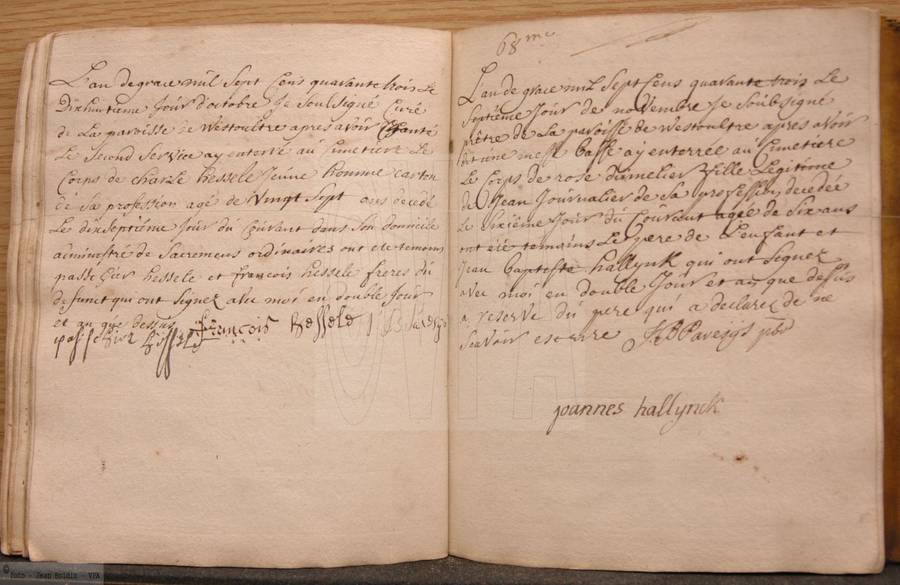 L'an de grace mil Sept Cens quarante trois Le
Dixhuitieme Jour d'octobre Je Soussigné Curé
de La paroisse de Westoultre apres avoir Chanté
Le Second Service ay enterré au Cimetiere Le
Corps de charle hessele Jeune homme
de Sa profession agé de Vingt Sept ans decedé
Le dixseptieme Jour du Courant dans Son domicile
administré de Sacremens ordinaires ont eté temoins
passchier hessele et francois hessele freres du
defunct qui ont Signez avec moi en double Jour
et an que dessus
françois hessele
passchier hessele
68me
L'an de grace mil Sept Cens quarante trois Le
Septieme Jour de novembre Je Soubsigné
prêtre de La paroisse de Westoultre apres avoir
dit une messe basse ay enterrée au Cimetiere
Le Corps de rose fille Legitime
de Jean Journalier de Sa profession decedée
Le Sixieme Jour du Courant agée de Six ans
ont été temoins Le pere de L'enfant et
Jean baptiste hallynk qui ont Signez
avec moi en double Jour et an que dessus
a reserve du pere qui a declarez de ne
Scavoir escrire JB Pavesys pbr
joannes hallynck
© Foto - Jean Boldin - VPA